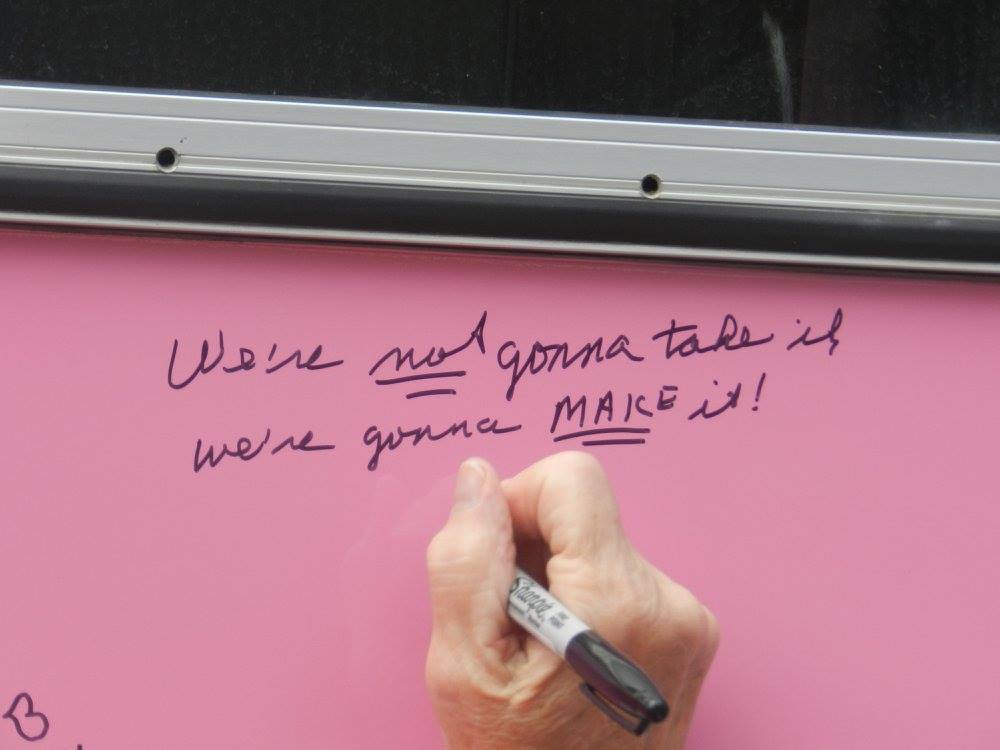 We're not gonna take it,
we're gonna MAKE it!
Sharpie